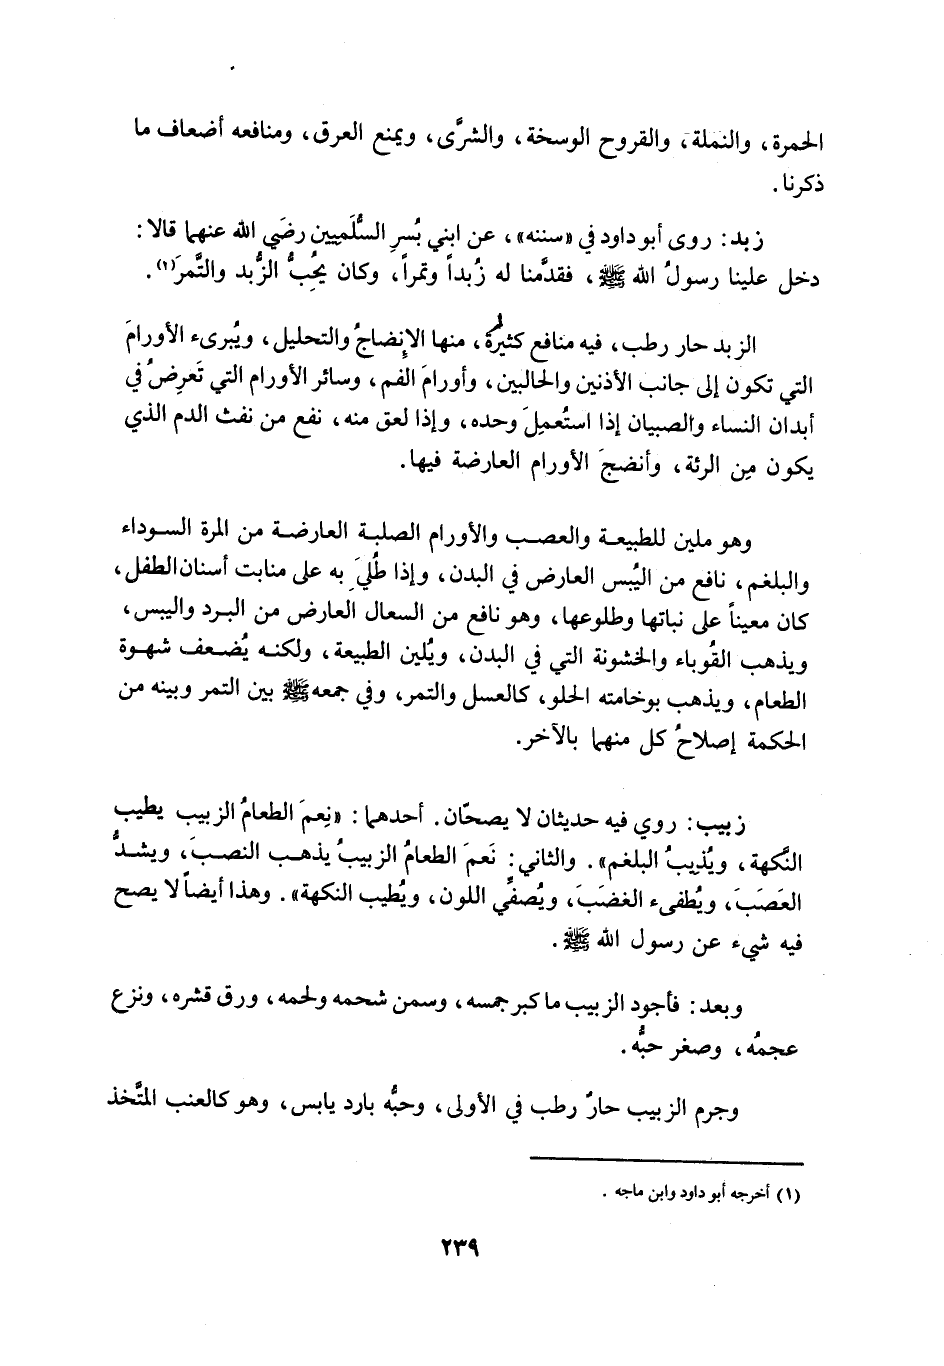 الحمرة، والنملة، والقروح الوسخة، والشرَّى، ويمنع العرق، ومنافعه أضعاف ما
ذكرنا.
زبد: روى أبو داود في «سننه»، عن ابني بُسرِ السُّلَميين رضَي الله عنهما قالا:
دخل علينا رسولُ الله ﷺ، فقدَّمنا له زُبداً وتمراً، وكان يحُبُّ الزُّبد والتَّمرَ(١).
الزبد حار رطب، فيه منافع كثيرة، منها الإِنضاجُ والتحليل، ويُبرىء الأورامَ
التي تكون إلى جانب الأذنين والحالبين، وأورامَ الفم، وسائر الأورام التي تَعرِضُ في
أبدان النساء والصبيان إذا استُعمِلَ وحده، وإذا لعق منه، نفع من نفث الدم الذي
يكون مِن الرئة، وأنضجَ الأورام العارضة فيها.
وهو ملين للطبيعة والعصب والأورام الصلبة العارضة من المرة السوداء
والبلغم، نافع من اليُبس العارض في البدن، وإذا طُليَ به على منابت أسنان الطفل،
كان معيناً على نباتها وطلوعها، وهو نافع من السعال العارض من البرد واليبس،
ويذهب القُوباء والخشونة التي في البدن، ويُلين الطبيعة، ولكنه يُضعف شهوة
الطعام، ويذهب بوخامته الحلو، كالعسل والتمر، وفي جمعه ﷺ بين التمر وبينه من
الحكمة إصلاحُ كل منهما بالآخر.
زبيب: روي فيه حديثان لا يصحّان. أحدهما: «نِعمَ الطعامُ الزبيب يطيب
النَّكهة، ويُذِيبُ البلغم». والثاني: نَعمَ الطعامُ الزبيبُ يذهب النصبَ، ويشدُّ
العَصَبَ، ويُطفىء الغضَبَ، ويصُفيِّ اللون، ويُطيب النكهة». وهذا أيضاً لا يصح
فيه شيء عن رسول الله ﷺ.
وبعد: فأجود الزبيب ما كبر جمسه، وسمن شحمه ولحمه، ورق قشره، ونزع
عجمُه، وصغر حبُّه.
وجرم الزبيب حارٌ رطب في الأولى، وحبُّه بارد يابس، وهو كالعنب المتَّخذ
(١) أخرجه أبو داود وابن ماجه.
٢٣٩